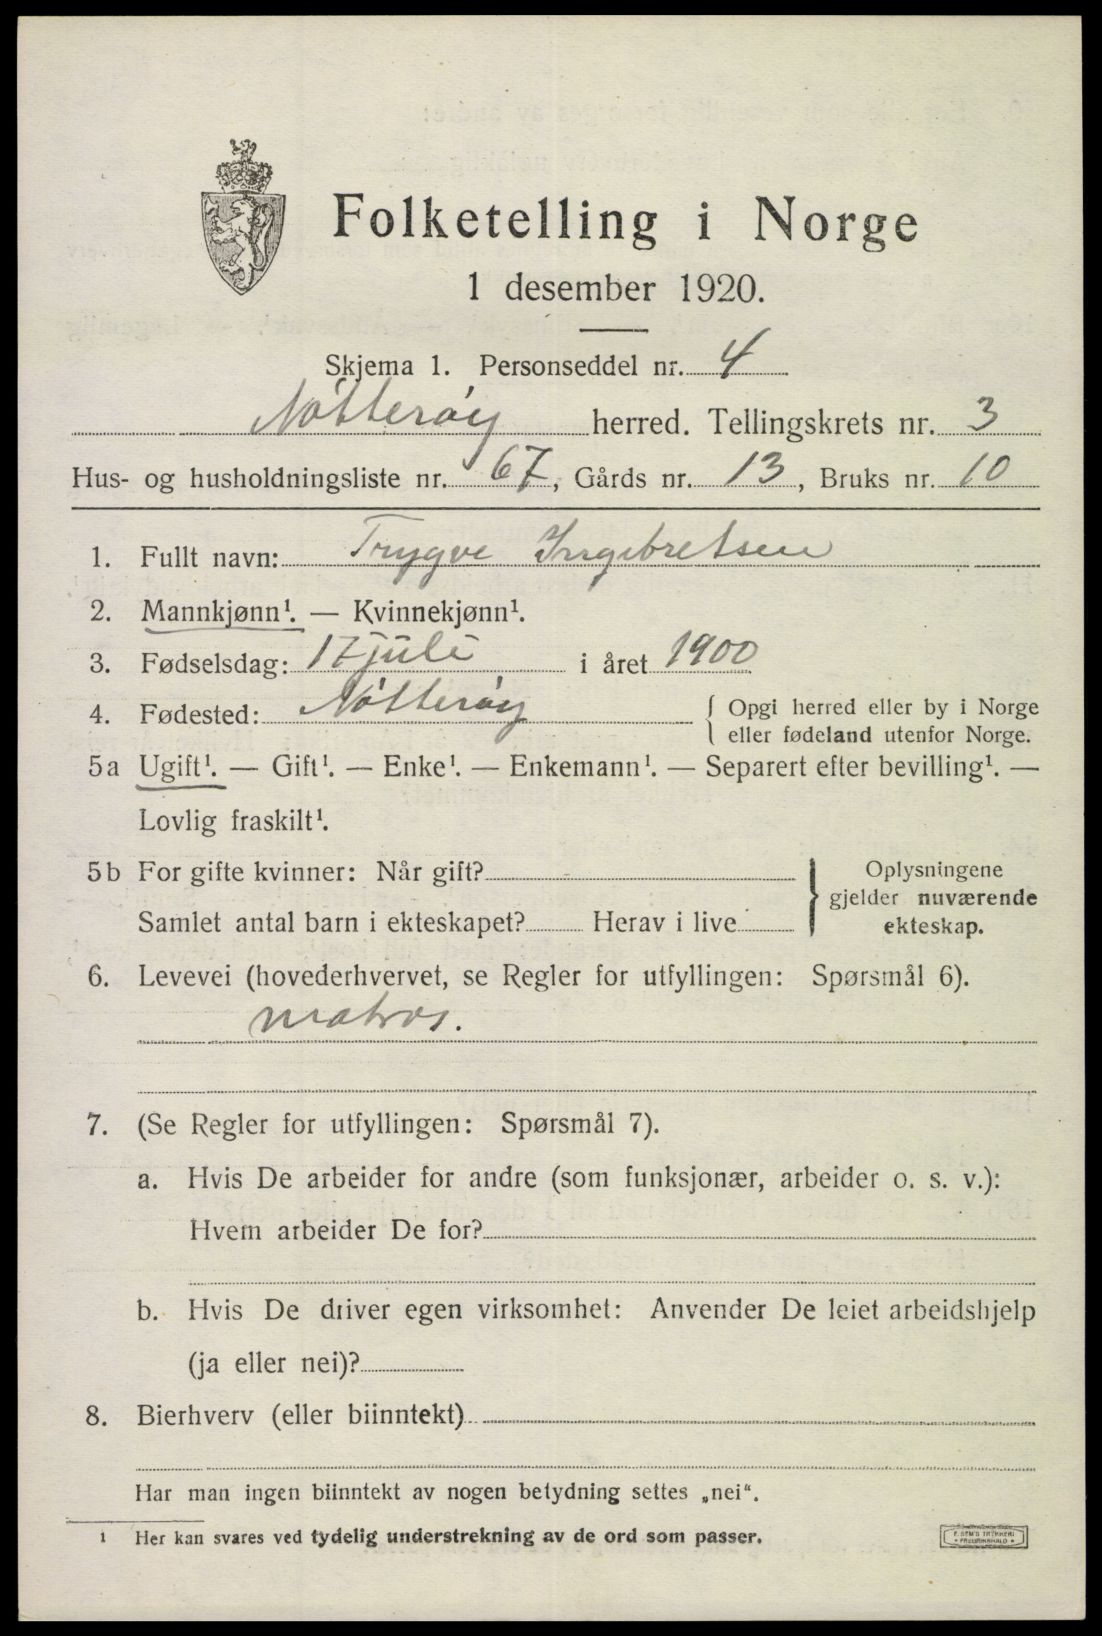 Folketelling i Norge
1 desember 1920.
Skjema 1. Personseddel nr. 4
Nøtterøy herred. Tellingskrets nr. 3
Hus- og husholdningsliste nr. 67, Gårds nr. 13, Bruks nr. 10
1. Fullt navn: Trygve Ingebretsen
2. Mannkjønn¹. — Kvinnekjønn¹.
3. Fødselsdag: 17 juli i året 1900
4. Fødested: Nøtterøy { Opgi herred eller by i Norge
eller fødeland utenfor Norge.
5a Ugift¹. — Gift¹. — Enke¹. — Enkemann¹. — Separert efter bevilling¹. —
Lovlig fraskilt¹.
5b For gifte kvinner: Når gift?
Samlet antal barn i ekteskapet? Herav i live
} Oplysningene
gjelder nuværende
ekteskap.
6. Levevei (hovederhvervet, se Regler for utfyllingen: Spørsmål 6).
matros.
7. (Se Regler for utfyllingen: Spørsmål 7).
a. Hvis De arbeider for andre (som funksjonær, arbeider o. s. v.):
Hvem arbeider De for?
b. Hvis De driver egen virksomhet: Anvender De leiet arbeidshjelp
(ja eller nei)?
8. Bierhverv (eller biinntekt)
Har man ingen biinntekt av nogen betydning settes „nei“.
¹ Her kan svares ved tydelig understrekning av de ord som passer.
E. SEM'S TRYKKERI
FREDRIKSHALD